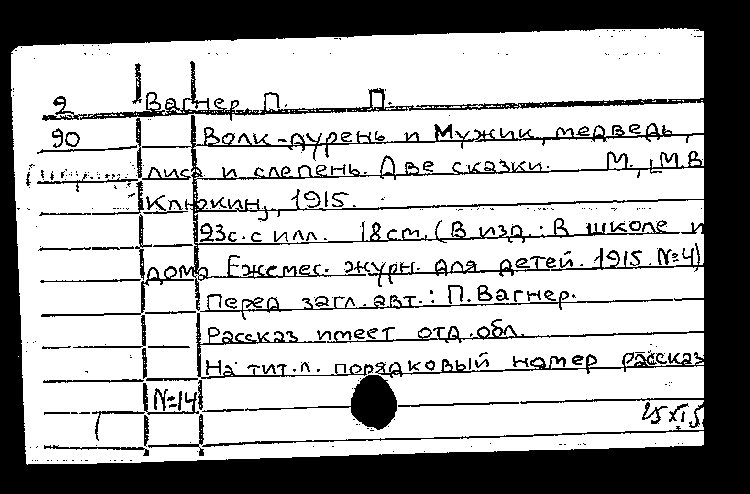 2 Вагнер, П. П.
90 Волк-дурень и Мужик, медведь,
лиса и слепень. Две сказки. М., [М.В
Клюкин], 1915.
23с. с илл. 18см. (В изд.: В школе и
дома Ежемес. журн. для детей. 1915. №4)
Перед загл. авт.: П. Вагнер.
Рассказ имеет отд. обл.
На тит. л. порядковый номер рассказ
№14